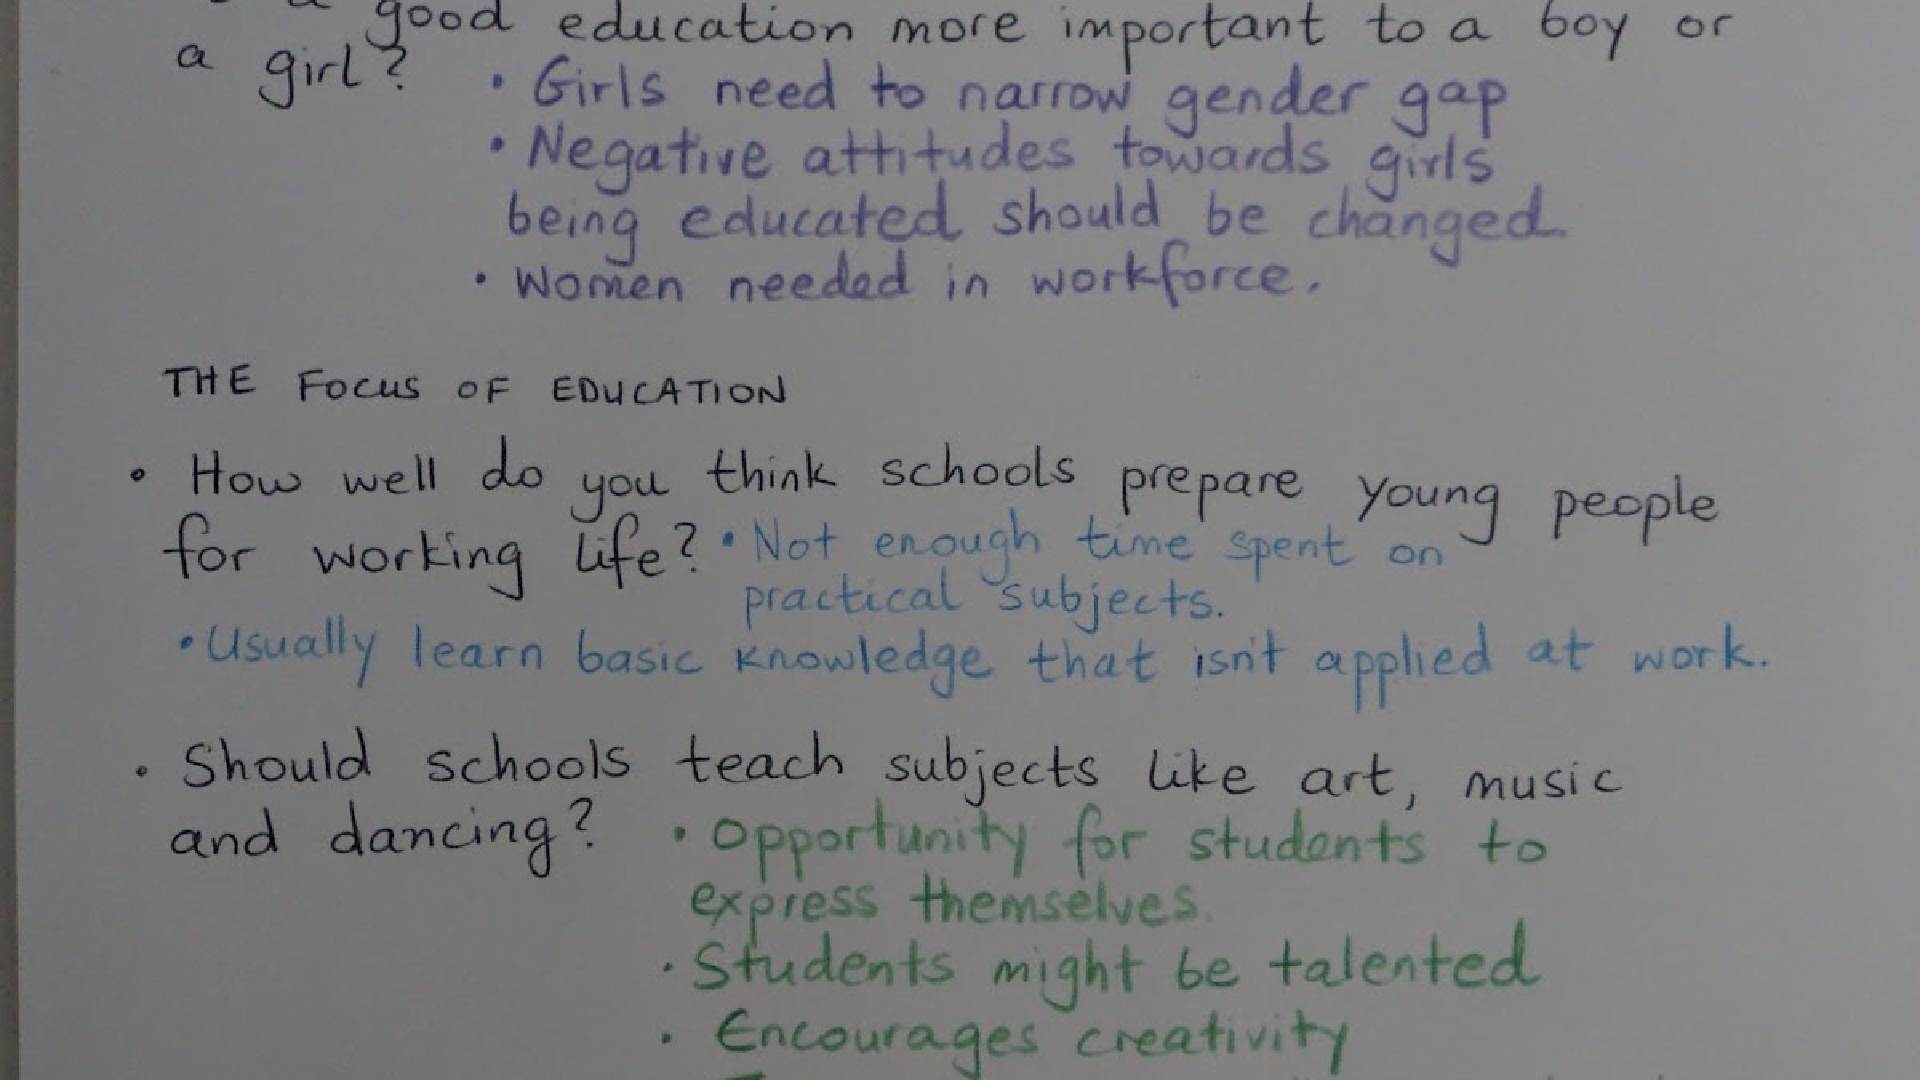 a good education more important to a boy or
a girl? • Girls need to narrow gender gap
• Negative attitudes towards girls
being educated should be changed.
• Women needed in workforce.
THE FOCUS OF EDUCATION
• How well do you think schools prepare young people
for working life? • Not enough time spent on
practical subjects.
• Usually learn basic knowledge that isn't applied at work.
• Should schools teach subjects like art, music
and dancing? • Opportunity for students to
express themselves.
• Students might be talented
• Encourages creativity